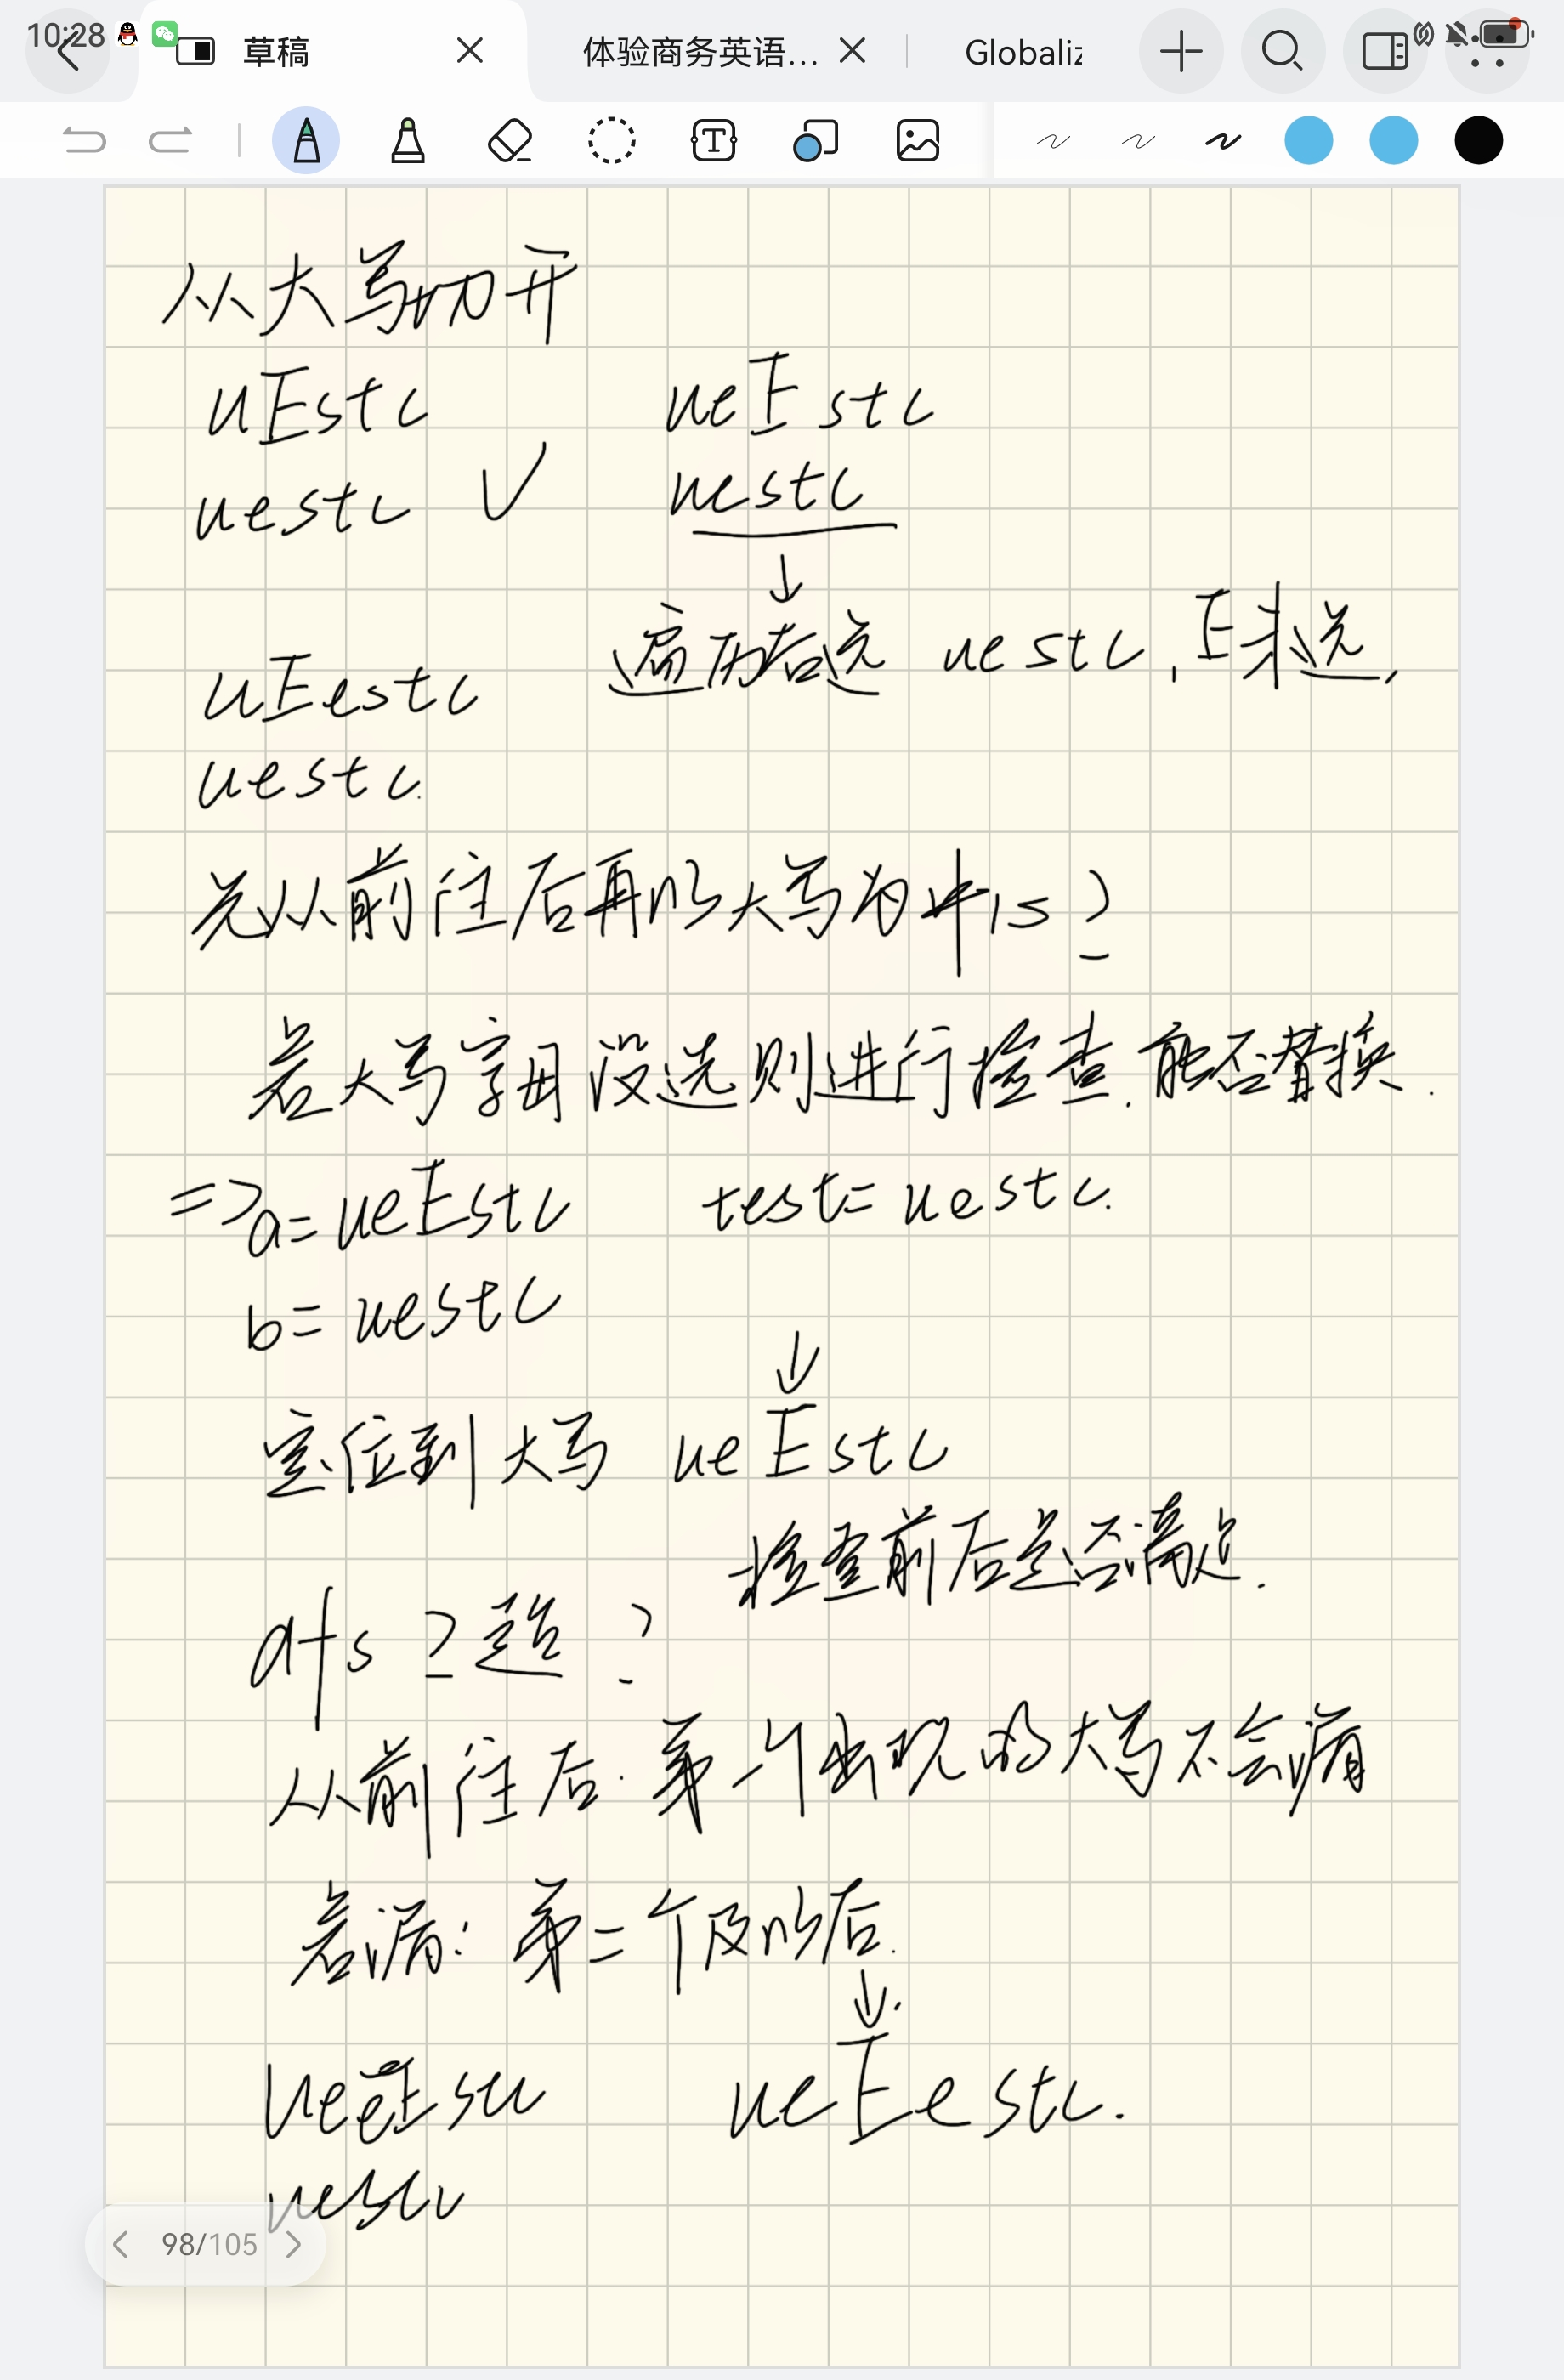 10:28
草稿
体验商务英语...
Globaliz
从大写切开
uEstc ueEstc
uestc √ uestc
↓
uEestc 遍历后选 uestc,E未选,
uestc.
先从前往后再以大写为中心?
若大写字母没选则进行检查.能否替换.
=>a=ueEstc test=uestc.
b=uestc
↓
定位到大写 ueEstc
检查前后是否满足.
dfs≥超?
从前往后.第一个出现的大写不会漏
若漏:第二个及以后.
↓.
ueEestc.
uestc
98/105